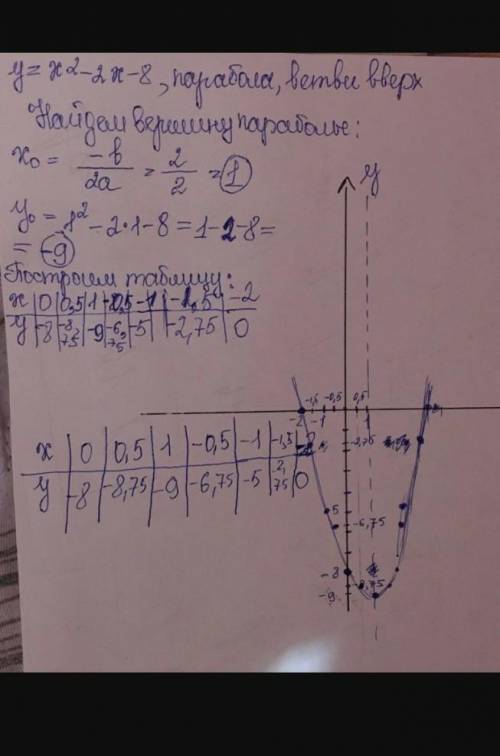 y = x² - 2x - 8, парабола, ветви вверх
Найдем вершину параболы:
x₀ = -b/2a = 2/2 = 1
y₀ = 1² - 2·1 - 8 = 1 - 2 - 8 =
= -9
Построим таблицу:
x | 0 | 0,5 | 1 | -0,5 | -1 | -1,5 | -2
y | -8 | -8,75 | -9 | -6,75 | -5 | -2,75 | 0
x | 0 | 0,5 | 1 | -0,5 | -1 | -1,5 | -2
y | -8 | -8,75 | -9 | -6,75 | -5 | -2,75 | 0
y
-1,5 -0,5 0,5
-2 -1 1
-2,75
5
-6,75
-8
8,75
-9